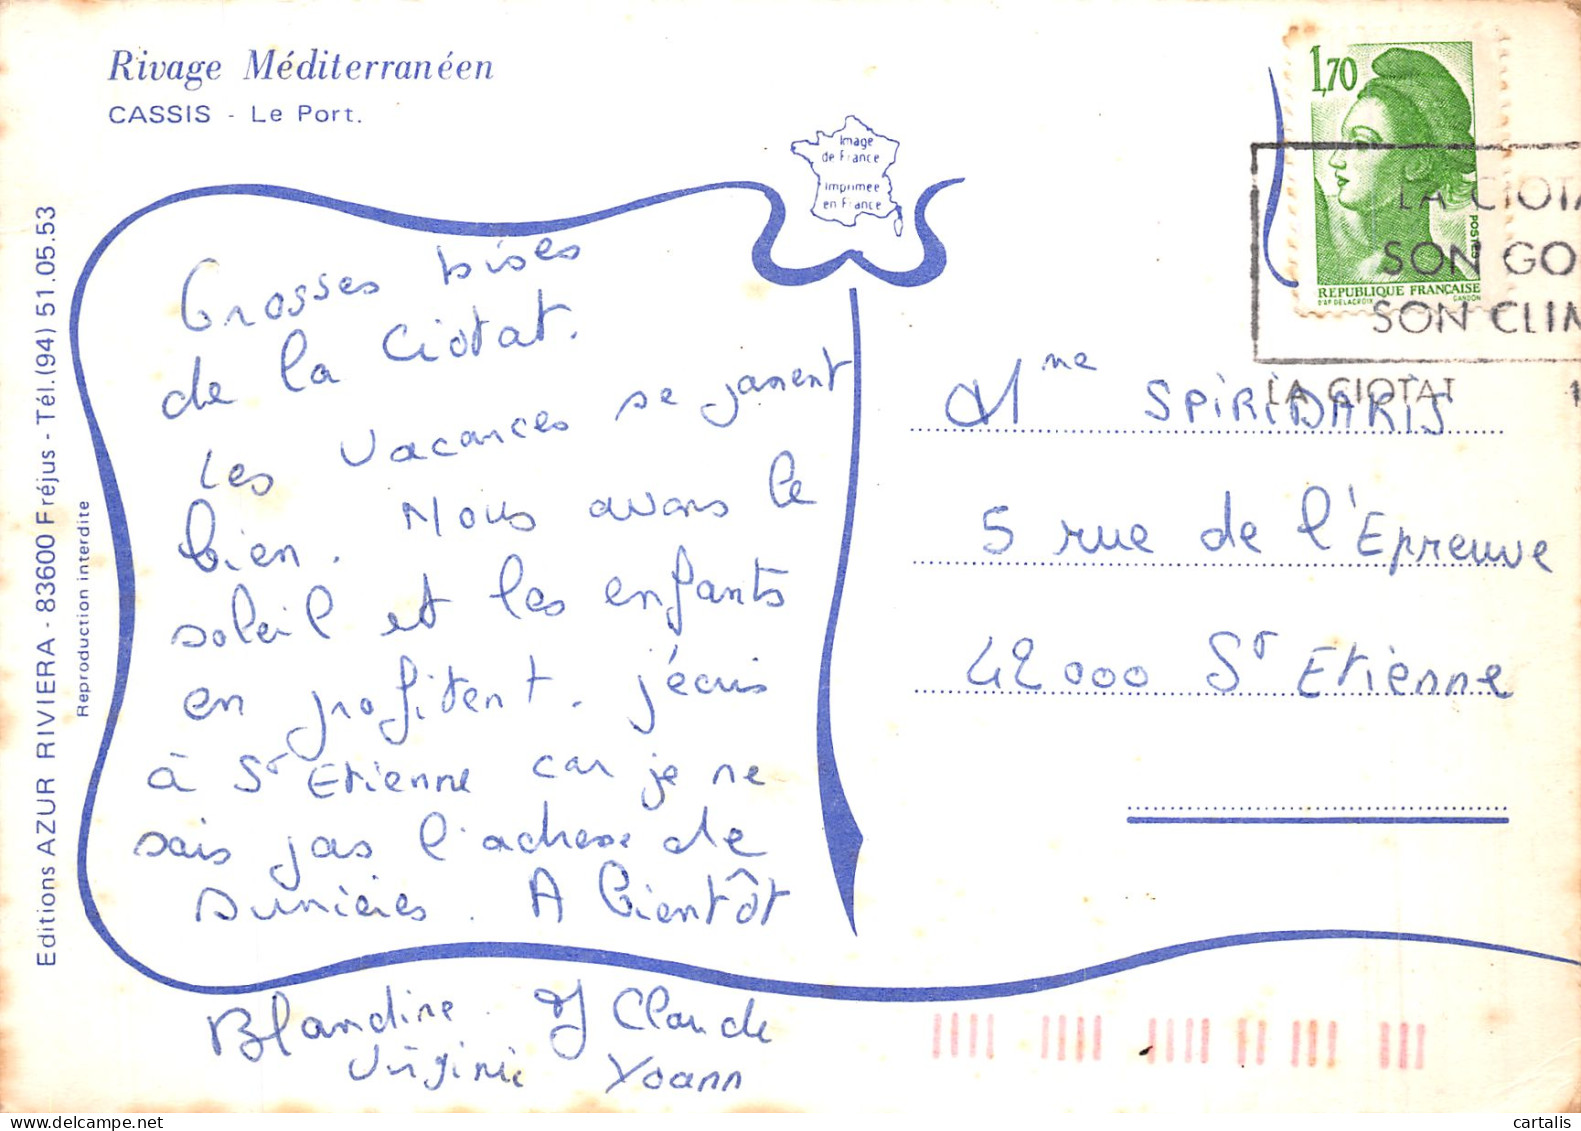 Rivage Méditerranéen
CASSIS - Le Port.
Image
de France
Imprimée
en France
Editions AZUR RIVIERA - 83600 Fréjus - Tél.(94) 51.05.53
Reproduction interdite
Grosses bises
de la Ciotat.
Les vacances se passent
bien. Nous avons le
soleil et les enfants
en profitent. j'écris
à St Etienne car je ne
sais pas l'adresse de
A bientôt
Blandine & J Claude
Virginie Yoann
1,70
POSTES
REPUBLIQUE FRANÇAISE
D'AP. DELACROIX GANDON
LA CIOTA
SON GO
SON CLIM
LA CIOTAT 1
Mme SPIRIDAKIS
5 rue de l'Epreuve
42000 St Etienne
cartalis